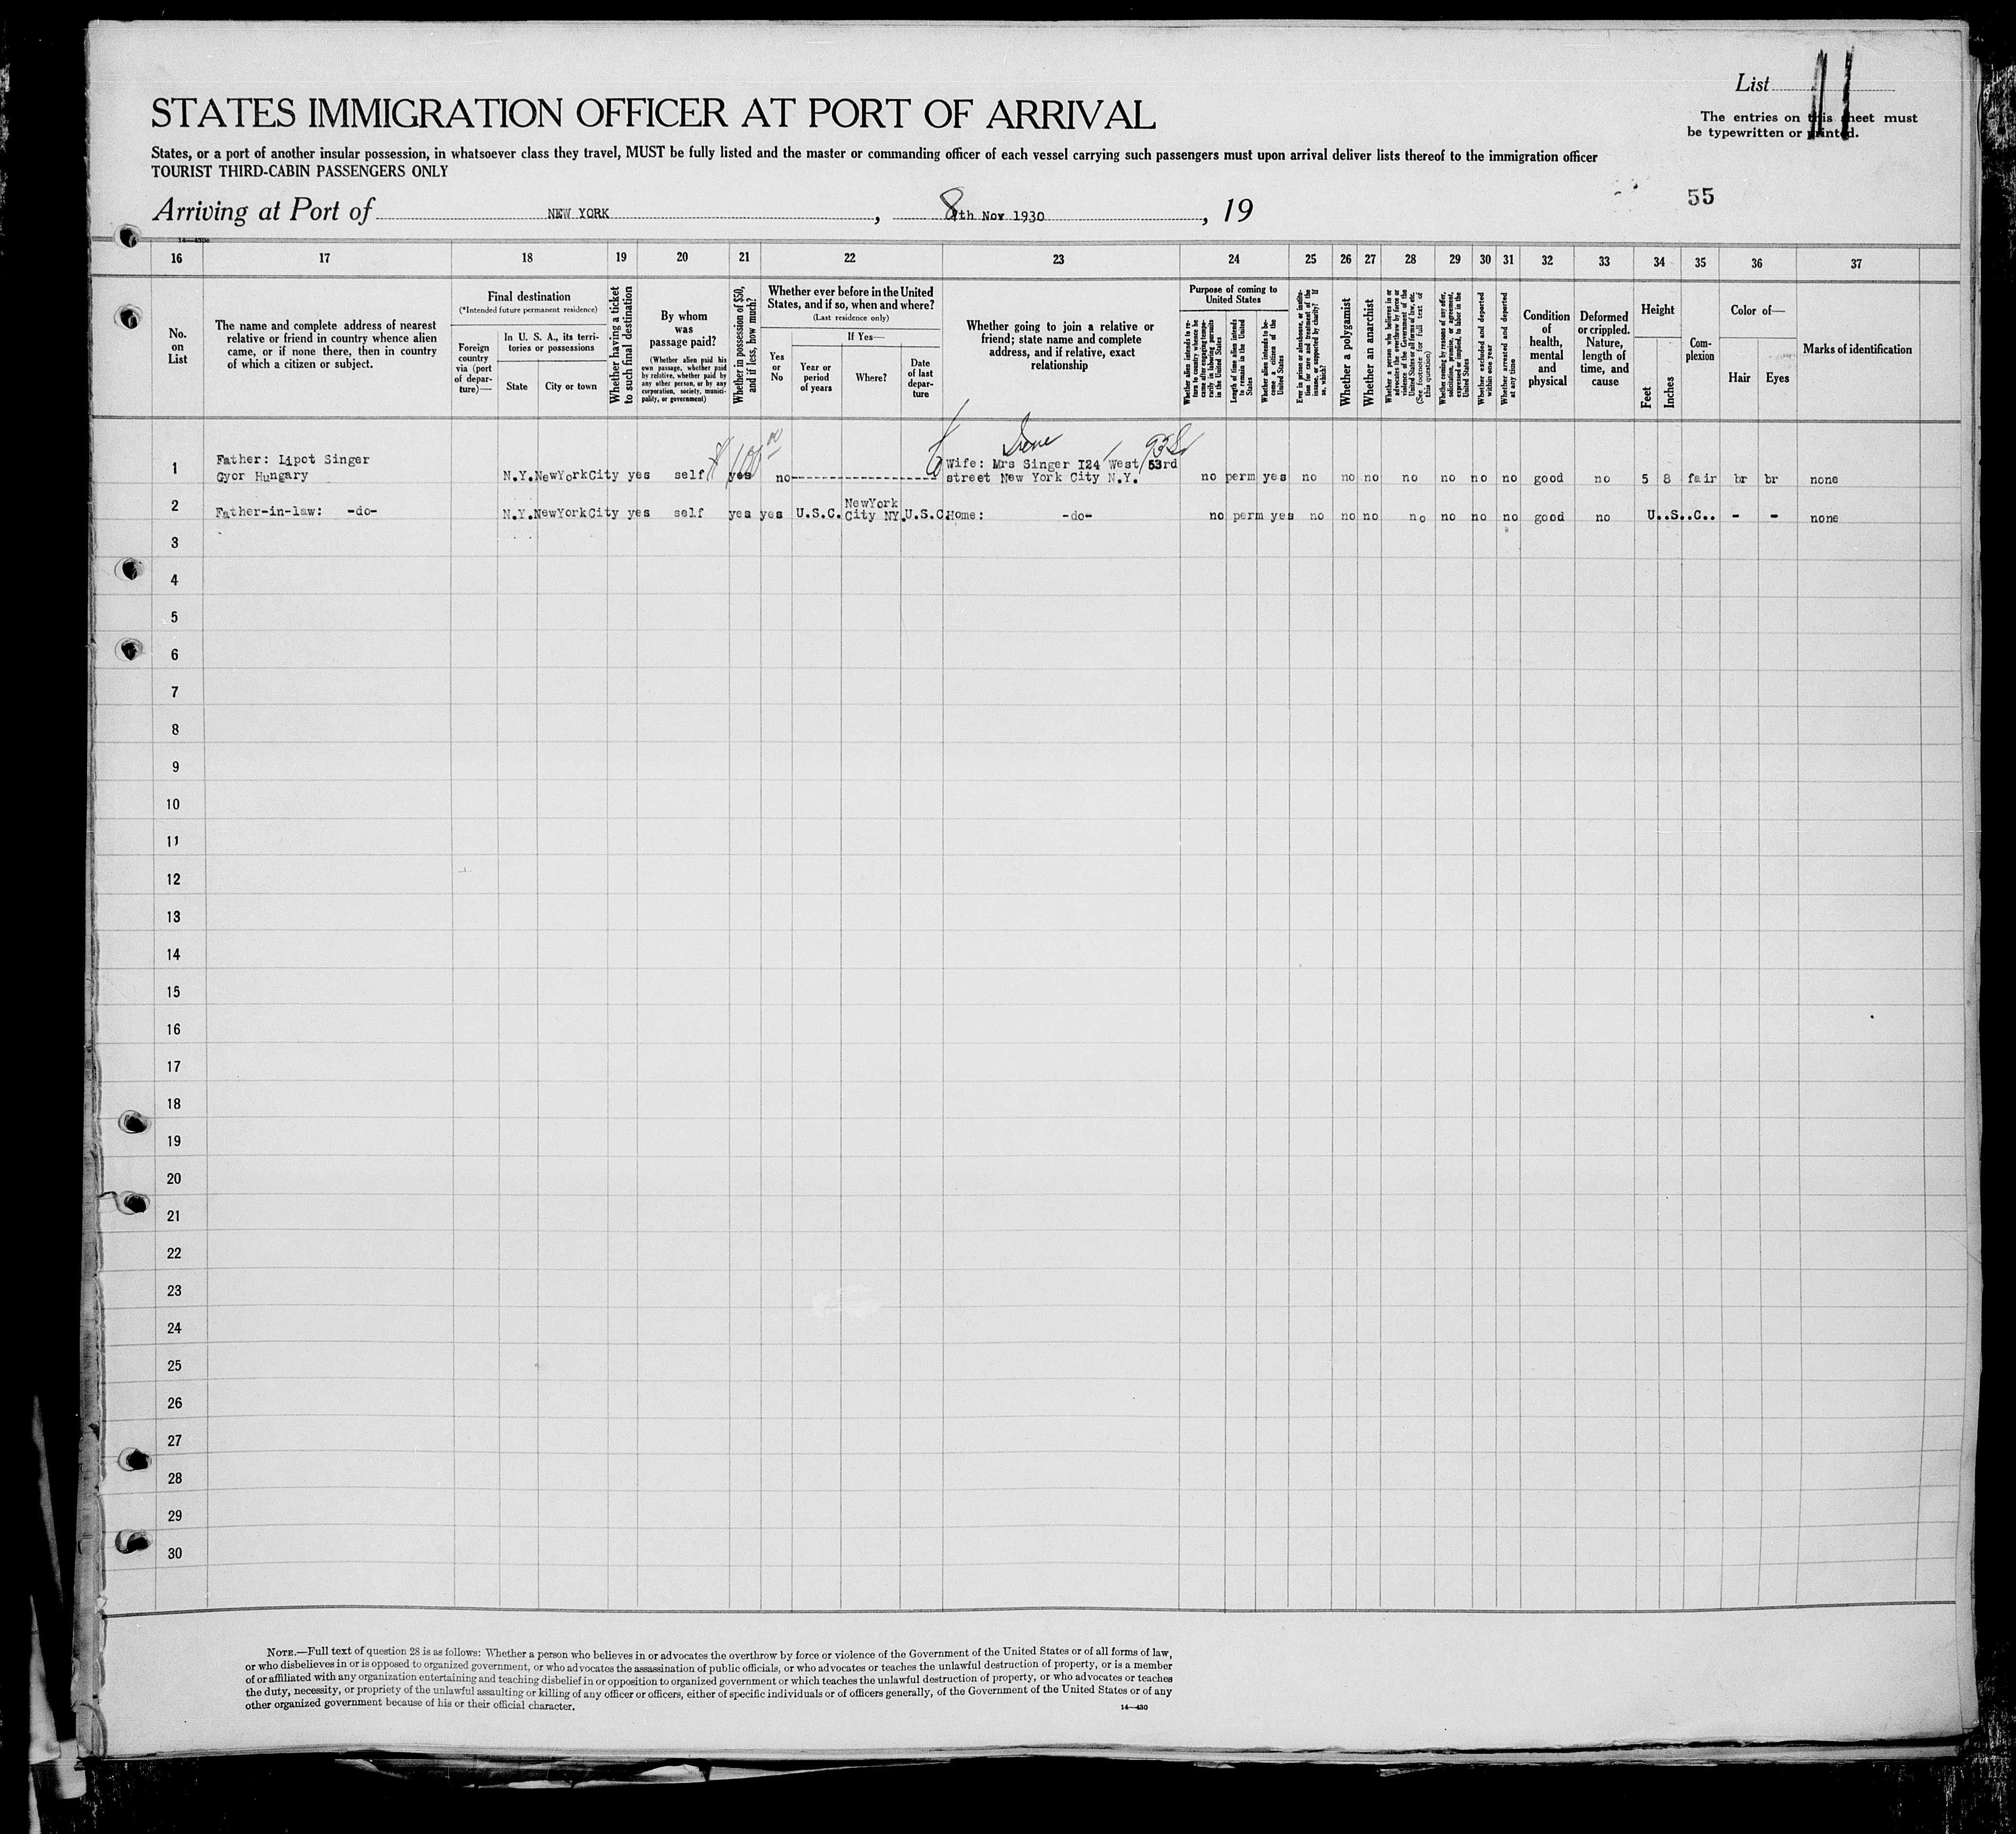 List 11
The entries on this sheet must
be typewritten or printed.
STATES IMMIGRATION OFFICER AT PORT OF ARRIVAL
States, or a port of another insular possession, in whatsoever class they travel, MUST be fully listed and the master or commanding officer of each vessel carrying such passengers must upon arrival deliver lists thereof to the immigration officer
TOURIST THIRD-CABIN PASSENGERS ONLY
55
Arriving at Port of NEW YORK, 8th Nov 1930, 19
14—430e
16 17 18 19 20 21 22 23 24 25 26 27 28 29 30 31 32 33 34 35 36 37
No.
on
List
The name and complete address of nearest
relative or friend in country whence alien
came, or if none there, then in country
of which a citizen or subject.
Final destination
(*Intended future permanent residence)
Foreign
country
via (port
of depar-
ture)—
In U. S. A., its terri-
tories or possessions
State
City or town
Whether having a ticket
to such final destination
By whom
was
passage paid?
(Whether alien paid his
own passage, whether paid
by relative, whether paid by
any other person, or by any
corporation, society, munici-
pality, or government)
Whether in possession of $50,
and if less, how much?
Whether ever before in the United
States, and if so, when and where?
(Last residence only)
Yes
or
No
If Yes—
Year or
period
of years
Where?
Date
of last
depar-
ture
Whether going to join a relative or
friend; state name and complete
address, and if relative, exact
relationship
Purpose of coming to
United States
Whether alien intends to re-
turn to country whence he
came after engaging tempo-
rarily in laboring pursuits
in the United States
Length of time alien intends
to remain in the United
States
Whether alien intends to be-
come a citizen of the
United States
Ever in prison or almshouse, or institu-
tion for care and treatment of the
insane, or supported by charity? If
so, which?
Whether a polygamist
Whether an anarchist
Whether a person who believes in or
advocates the overthrow by force or
violence of the Government of the
United States or all forms of law, etc.
(See footnote for full text of
this question)
Whether coming by reasons of any offer,
solicitation, promise, or agreement,
expressed or implied, to labor in the
United States
Whether excluded and deported
within one year
Whether arrested and deported
at any time
Condition
of
health,
mental
and
physical
Deformed
or crippled.
Nature,
length of
time, and
cause
Height
Feet
Inches
Com-
plexion
Color of—
Hair
Eyes
Marks of identification
Irene 93rd
1 Father: Lipot Singer
Gyor Hungary
N.Y. NewYorkCity yes self yes no
$100
Wife: Mrs Singer I24 West 53rd
street New York City N.Y.
no perm yes no no no no no no no good no 5 8 fair br br none
2 Father-in-law: -do- N.Y. NewYorkCity yes self yes yes U.S.C. NewYork
City NY. U.S.C. Home: -do- no perm yes no no no no no no no good no U..S..C.. - - none
3
4
5
6
7
8
9
10
11
12
13
14
15
16
17
18
19
20
21
22
23
24
25
26
27
28
29
30
NOTE.—Full text of question 28 is as follows: Whether a person who believes in or advocates the overthrow by force or violence of the Government of the United States or of all forms of law,
or who disbelieves in or is opposed to organized government, or who advocates the assassination of public officials, or who advocates or teaches the unlawful destruction of property, or is a member
of or affiliated with any organization entertaining and teaching disbelief in or opposition to organized government or which teaches the unlawful destruction of property, or who advocates or teaches
the duty, necessity, or propriety of the unlawful assaulting or killing of any officer or officers, either of specific individuals or of officers generally, of the Government of the United States or of any
other organized government because of his or their official character.
14—430